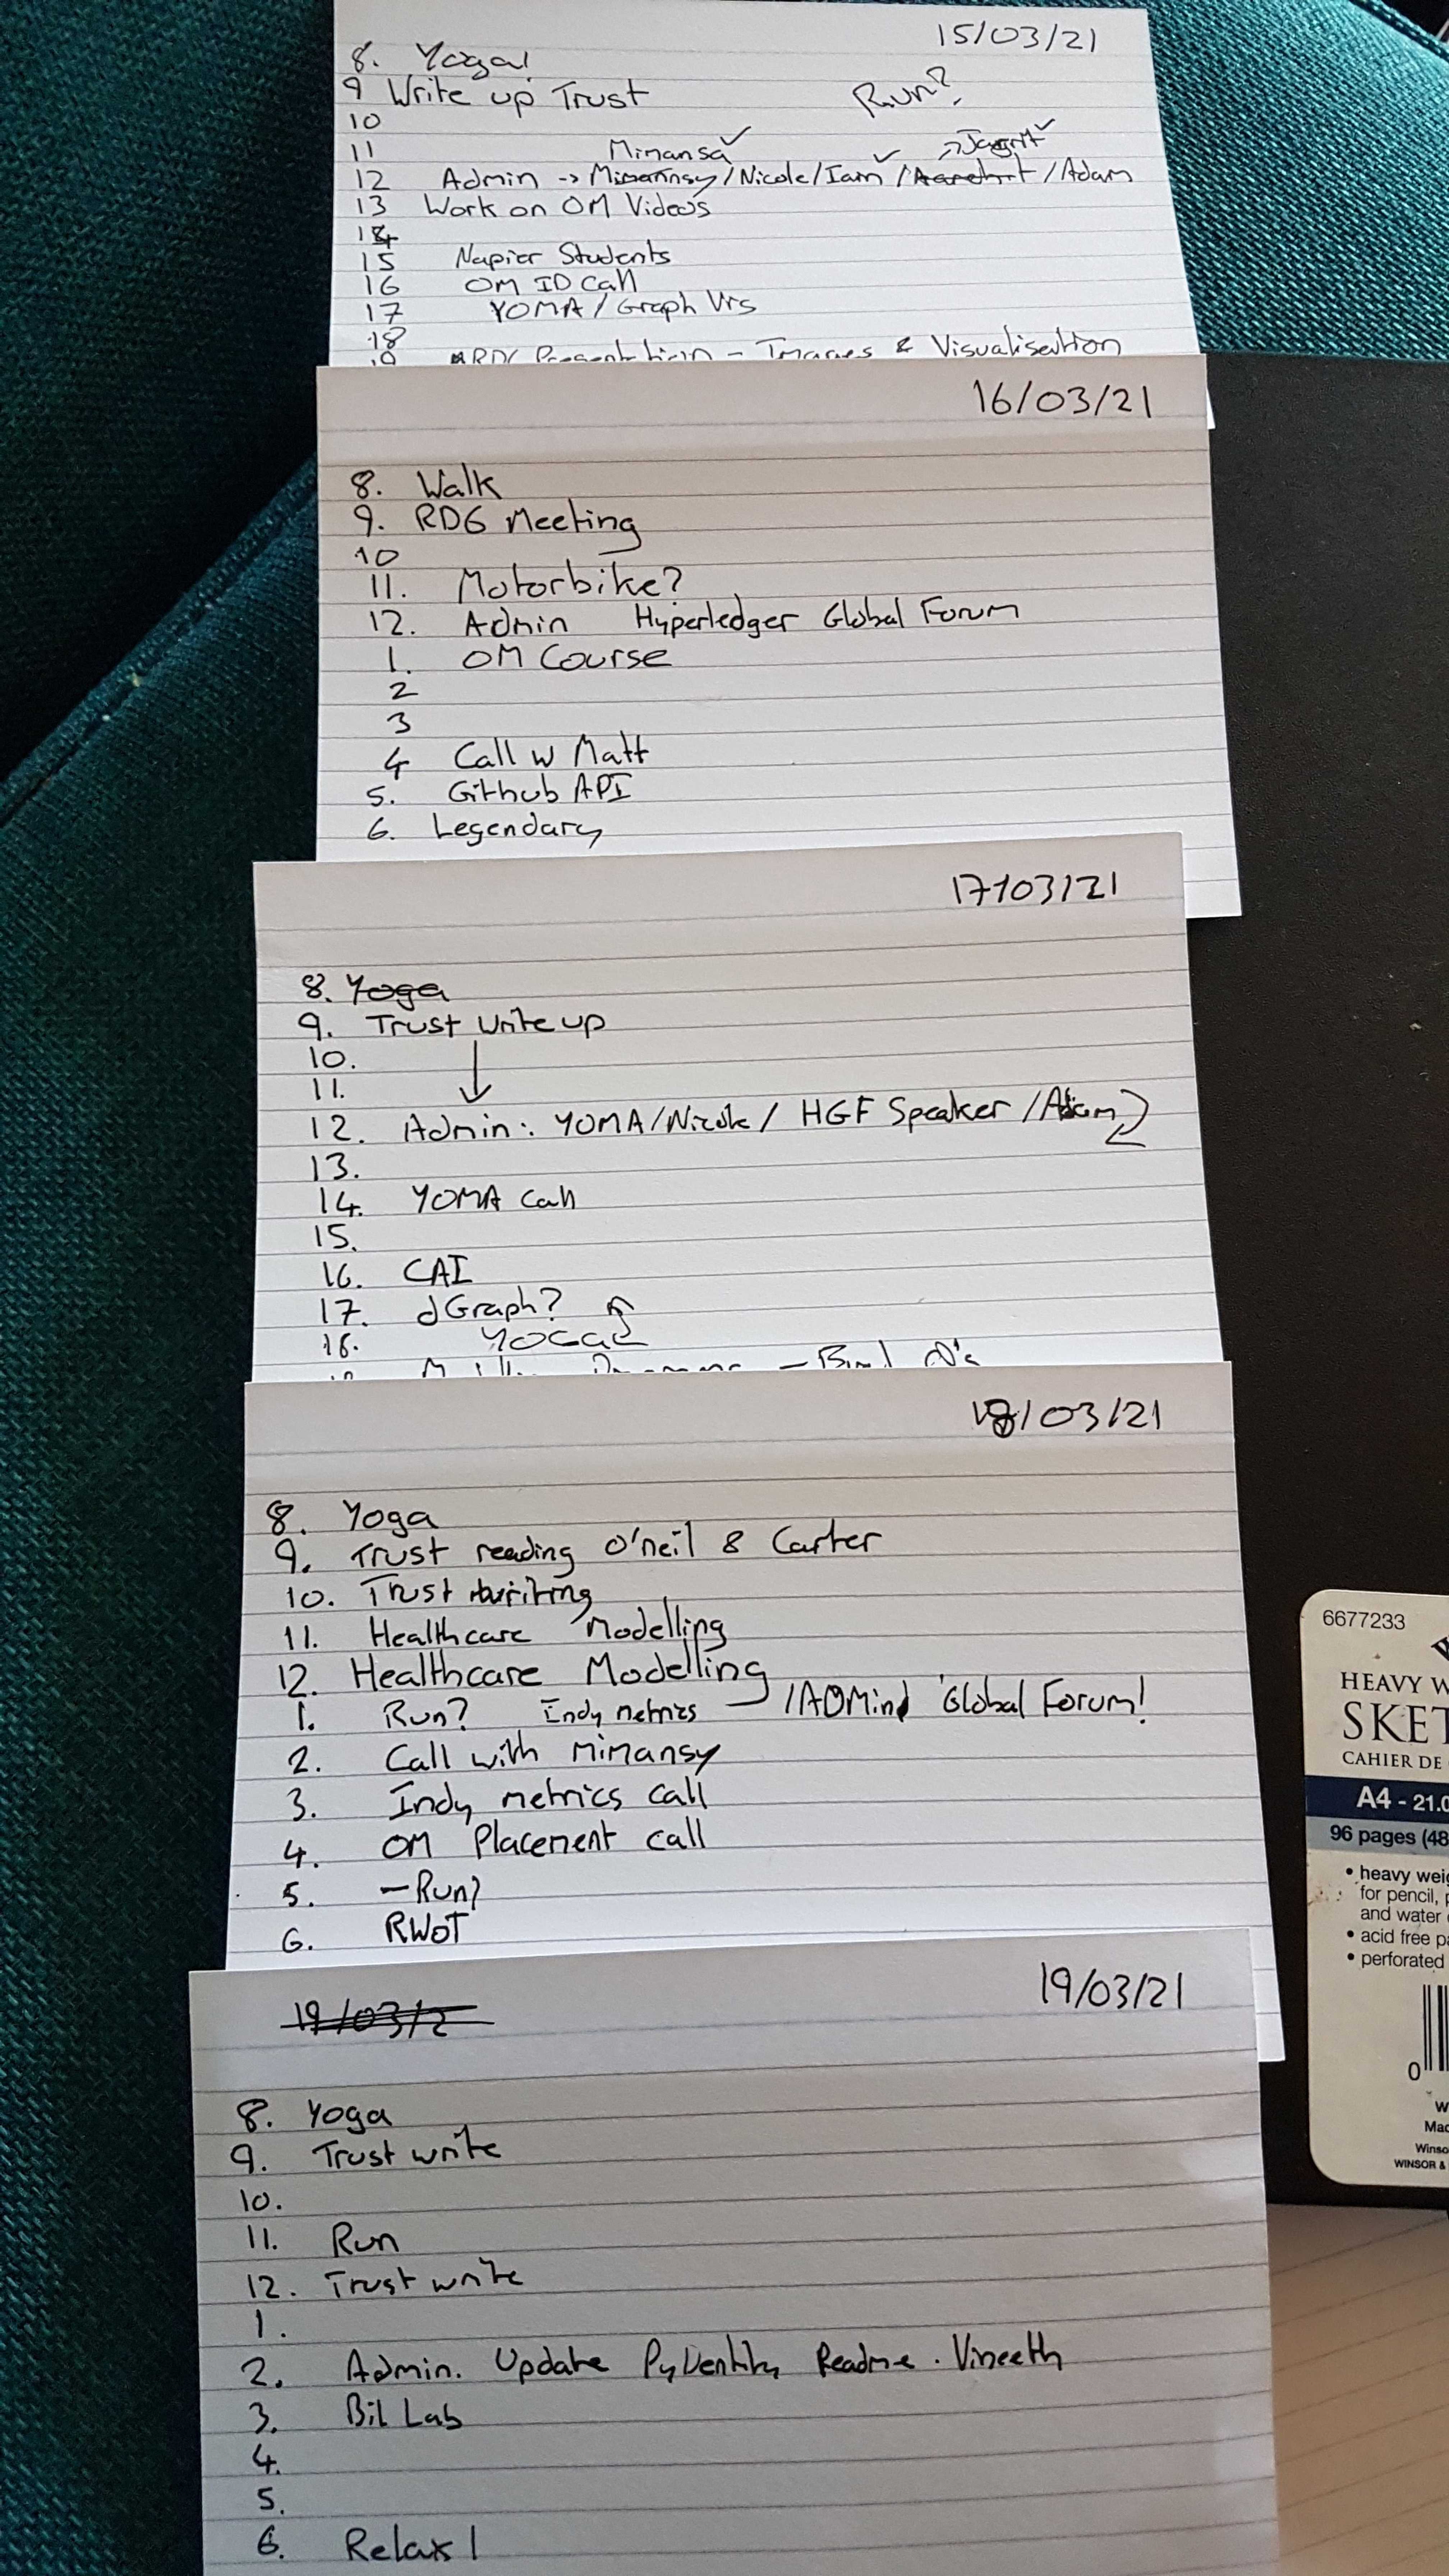 15/03/21
8. Yoga!
9 Write up Trust
Run?
10
11 Mimansa ✓ → Jagrit ✓
12 Admin -> Mimannsy/Nicole/Iain ✓ / /Adam
13 Work on OM Videos
14
15 Napier Students
16 OM ID Call
17 YOMA / Graph Vis
18
19 Presentation - Images & Visualisation
16/03/21
8. Walk
9. RDG Meeting
10
11. Motorbike?
12. Admin Hyperledger Global Forum
1. OM Course
2
3
4 Call w Matt
5. Github API
6. Legendary
17/03/21
8. Yoga
9. Trust write up
10.
11.
12. Admin: YOMA/Nicole/ HGF Speaker /Adam
13.
14. YOMA Call
15.
16. CAI
17. dGraph?
18.
18/03/21
8. Yoga
9. Trust reading O'neil & Carter
10. Trust writing
11. Healthcare Modelling
12. Healthcare Modelling
1. Run? Indy metrics /ADMin Global Forum!
2. Call with Mimansy
3. Indy metrics call
4. OM Placement call
5. - Run?
6. RWOT
19/03/2
19/03/21
8. Yoga
9. Trust write
10.
11. Run
12. Trust write
1.
2. Admin. Update PyDentity Readme. Vineeth
3. Bil Lab
4.
5.
6. Relax!
6677233
HEAVY W
SKET
CAHIER DE
A4 - 21.0
96 pages (48
• heavy weig
for pencil, p
and water
• acid free pa
• perforated
0
W
Mad
Winso
WINSOR &